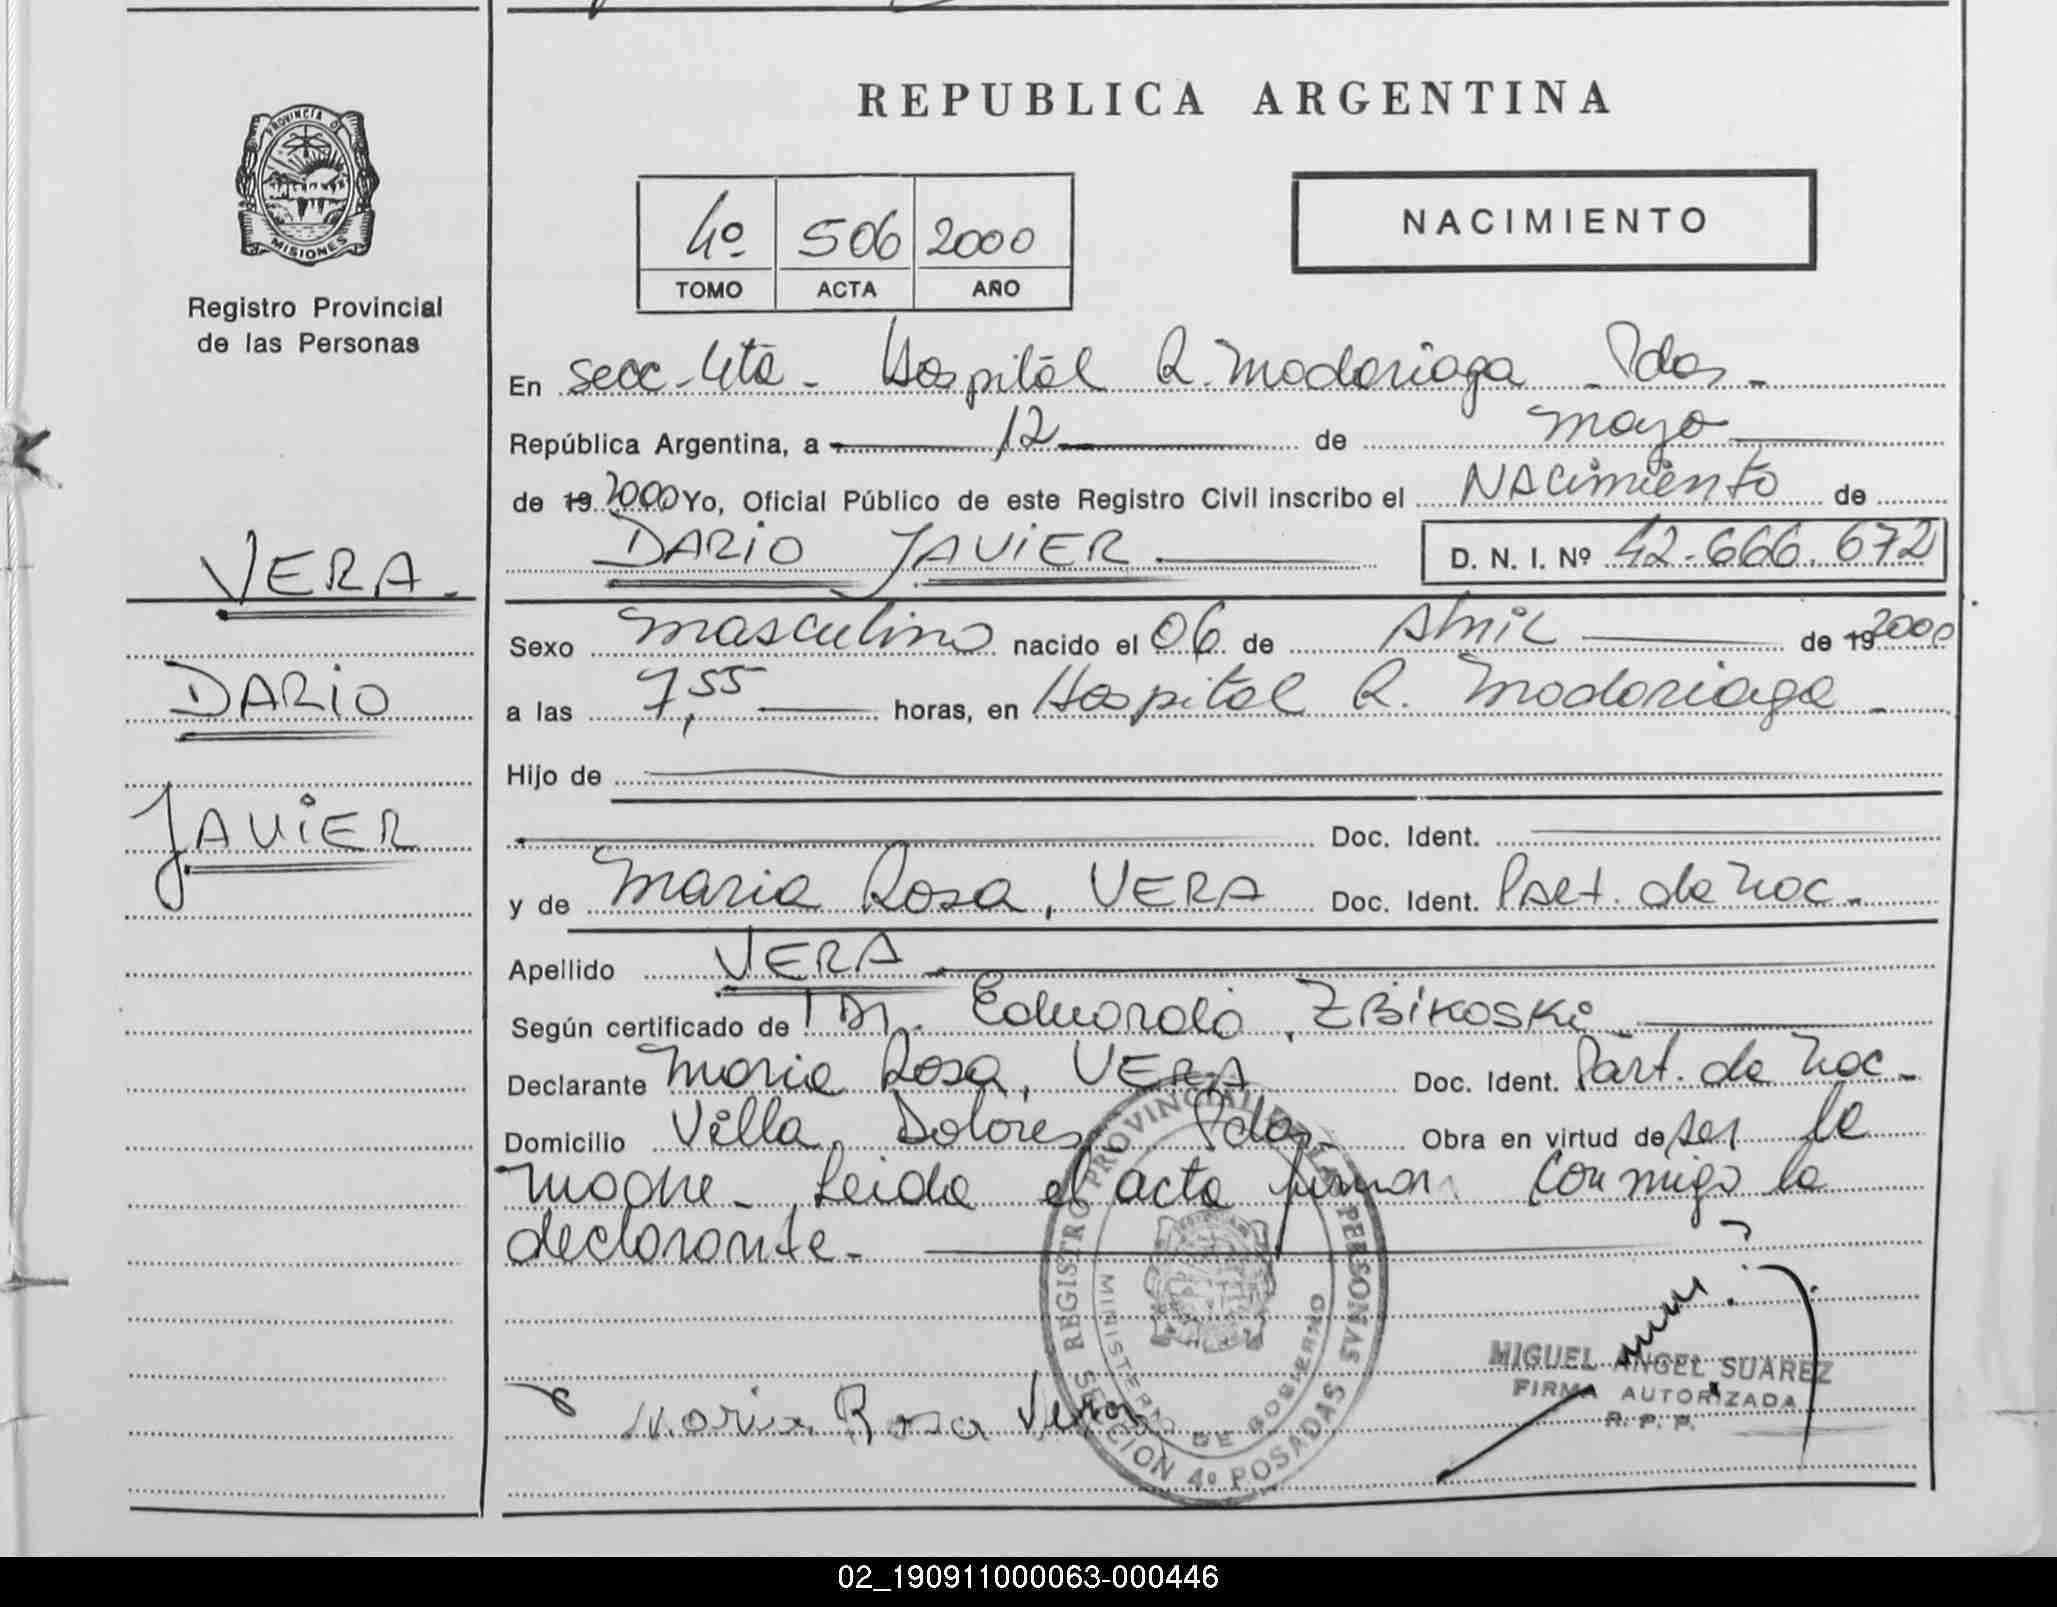 REPUBLICA ARGENTINA
PROVINCIA DE
MISIONES
Registro Provincial
de las Personas
4º 506 2000
TOMO ACTA AÑO
NACIMIENTO
En secc. 4ta - Hospital R. Madariaga - Pdas -
República Argentina, a 12 de mayo
de 19 2000 Yo, Oficial Público de este Registro Civil inscribo el NACimiento de
DARIO JAVIER D. N. I. Nº 42.666.672
VERA.
DARIO
JAVIER
Sexo masculino nacido el 06 de Abril de 19 2000
a las 7,55 horas, en Hospital R. Madariaga -
Hijo de
Doc. Ident.
y de Maria Rosa, VERA Doc. Ident. Part. de nac.
Apellido VERA
Según certificado de Dr. Eduardo ZBiKosKi
Declarante Maria Rosa, VERA Doc. Ident. Part. de nac -
Domicilio Villa Dolores Pdas - Obra en virtud de ser la
madre - Leida el acta firman conmigo la
declarante -
REGISTRO PROVINCIAL DE LAS PERSONAS
MINISTERIO DE GOBIERNO
SECCION 4º POSADAS
Maria Rosa Vera
MIGUEL ANGEL SUAREZ
FIRMA AUTORIZADA
R. P. P.
02_190911000063-000446